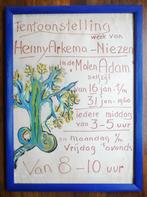 Tentoonstelling
werk van
Henny Arkema-Niezen
in de Molen Adam
van 16 jan. t/m
31 jan.
iedere middag
van 3-5 uur
en maandag t/m
Vrijdag 's avonds
van 8-10 uur